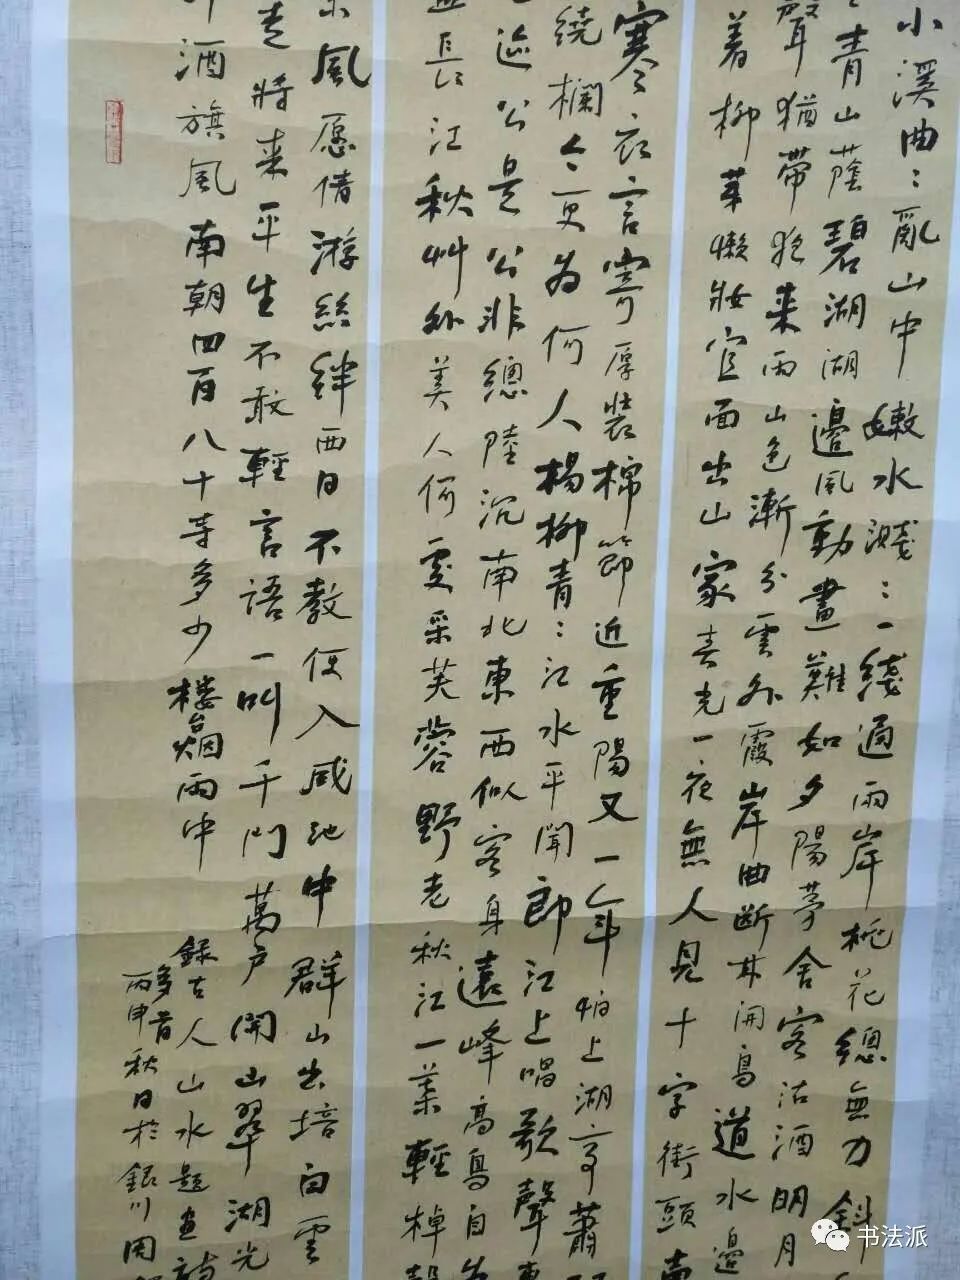 小溪曲〻亂山中嫩水濺〻一綫通兩岸桃花總無力斜
青山蔭碧湖湖邊風動畫難如夕陽茅舍客沽酒明月
聲猶帶夜來雨山色漸分雲外霞岸曲斷林開鳥道水邊
着柳華懶妝宜面出山家春光一夜無人見十字街頭
寒衣言寄厚裝棉節近重陽又一年怕上湖亭蕭
繞欄今更為何人楊柳青〻江水平聞郎江上唱歌聲東
迹公是公非總陸沉南北東西似客身遠峰高鳥自
長江秋艸外美人何處采芙蓉野老秋江一葉輕棹
風愿倩游絲絆西日不教便入咸池中群山出培白雲
走將来平生不敢輕言語一叫千門萬戶開山翠湖光
酒旗風南朝四百八十寺多少楼台烟雨中
録古人山水題畫詩
多首
丙申秋日於銀川
书法派